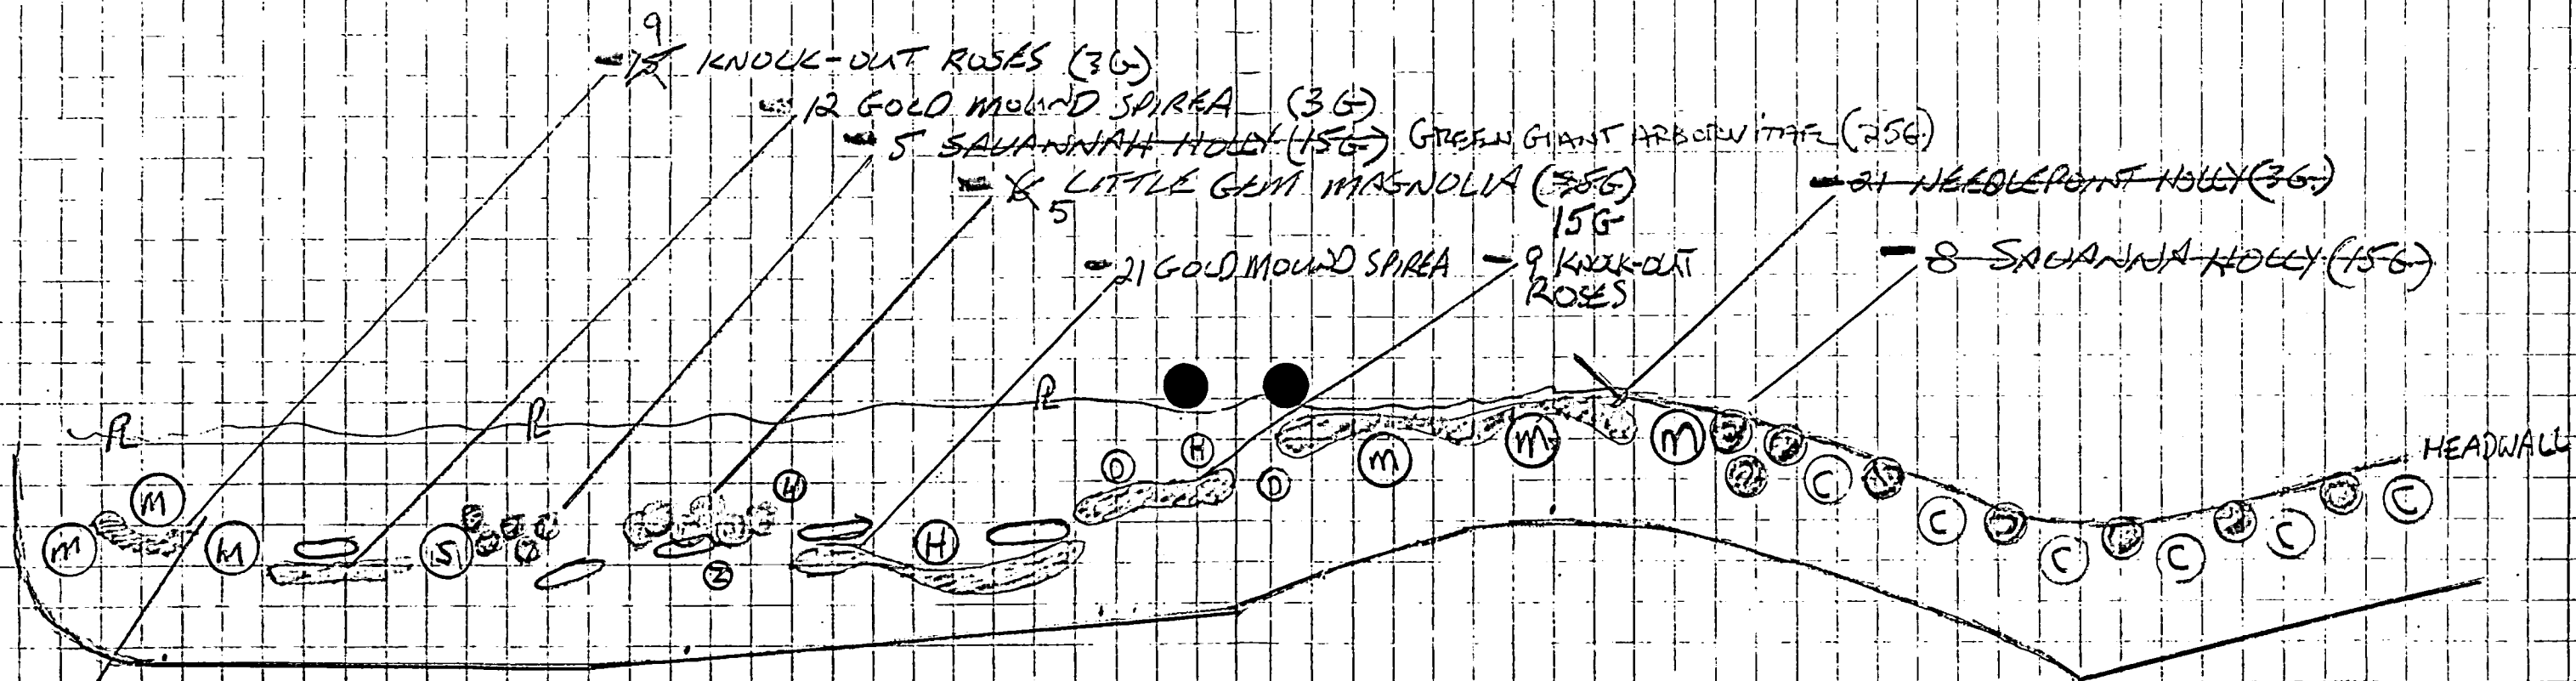 9
- 15 KNOCK-OUT ROSES (3G)
- 12 GOLD MOUND SPIREA (3G)
- 5 SAVANNAH HOLLY (15G) GREEN GIANT ARBORVITAE (25G)
- 6 LITTLE GEM MAGNOLIA (35G)
5
15G
- 21 NEEDLEPOINT HOLLY (3G.)
- 8 SAVANNA HOLLY (15G)
- 21 GOLD MOUND SPIREA
- 9 KNOCK-OUT
ROSES
PL
PL
PL
HEADWALL
M
M
M
S
4
2
H
O
H
O
M
M
M
C
C
C
C
C
C